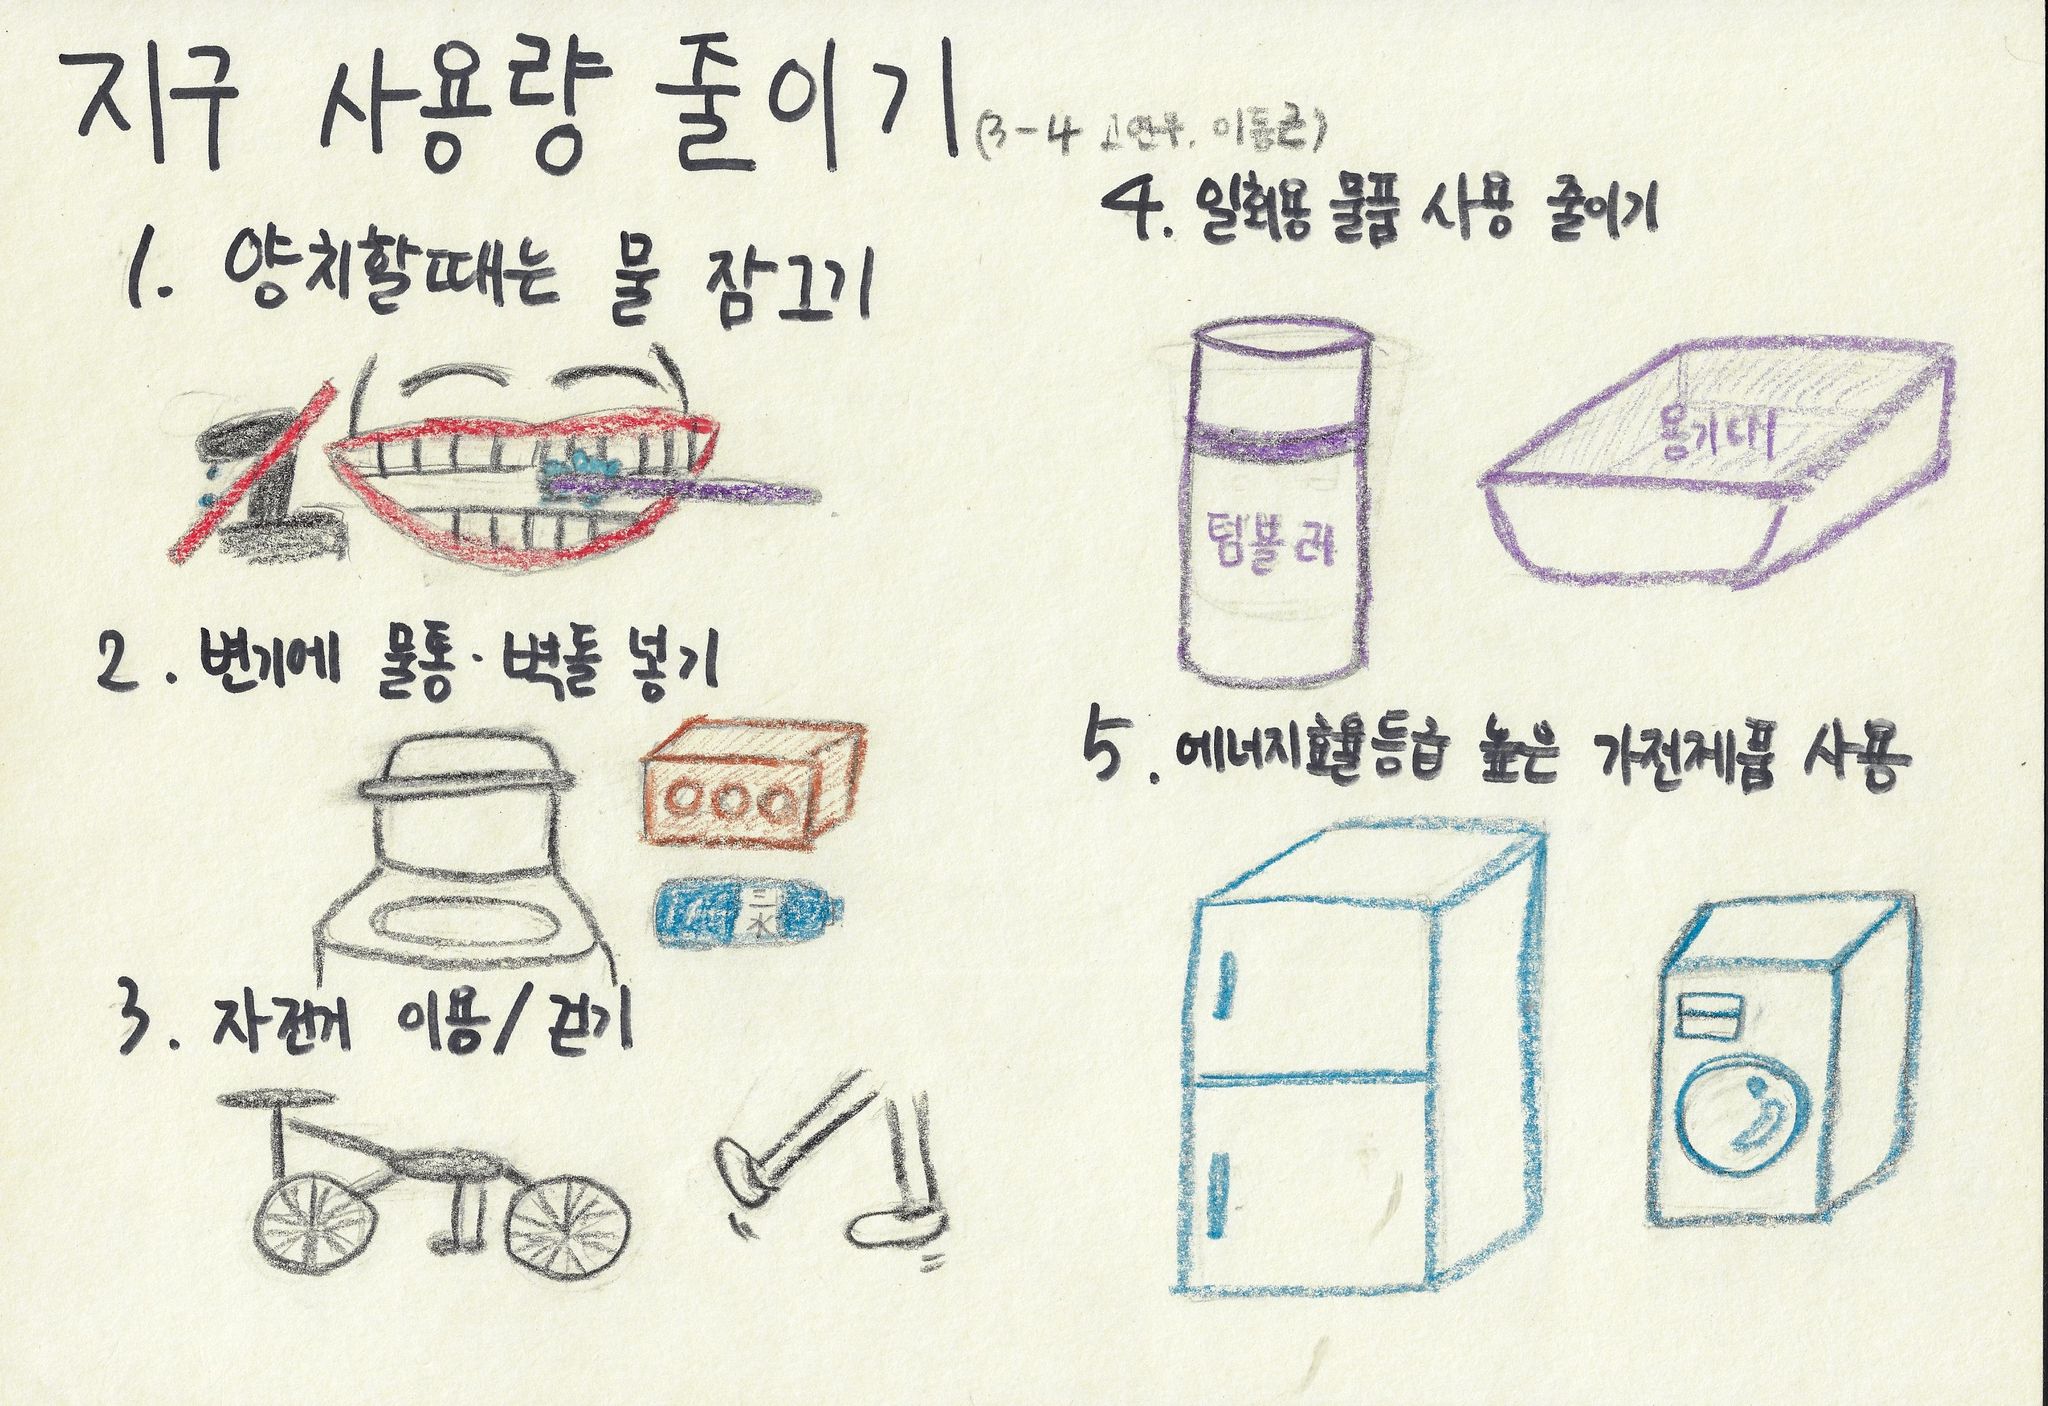 지구 사용량 줄이기 (3-4 고연우, 이동근)
1. 양치할때는 물 잠그기
2. 변기에 물통·벽돌 넣기
三
水
3. 자전거 이용/걷기
4. 일회용 물품 사용 줄이기
텀블러
용기내
5. 에너지효율등급 높은 가전제품 사용